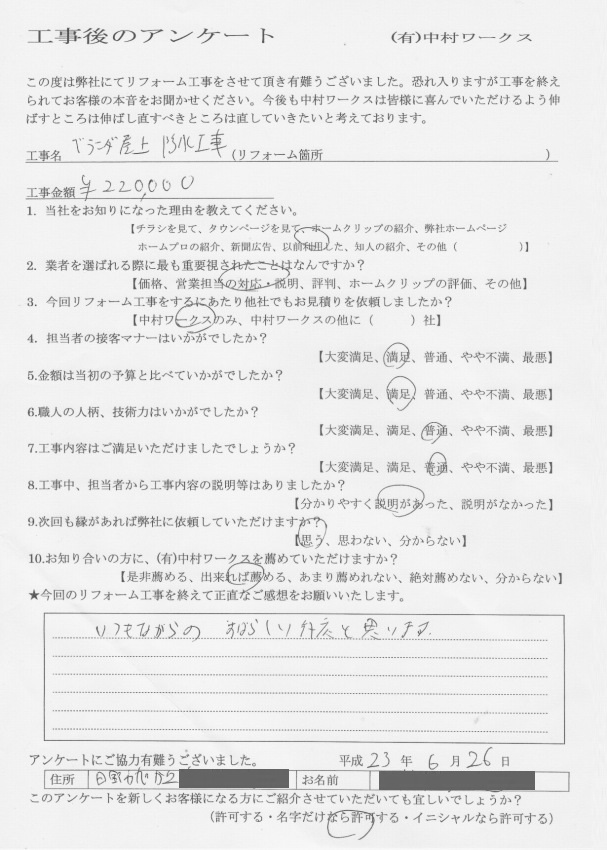 工事後のアンケート (有)中村ワークス
この度は弊社にてリフォーム工事をさせて頂き有難うございました。恐れ入りますが工事を終え
られてお客様の本音をお聞かせください。今後も中村ワークスは皆様に喜んでいただけるよう伸
ばすところは伸ばし直すべきところは直していきたいと考えております。
工事名 ベランダ屋上 防水工事 (リフォーム箇所 )
工事金額 ¥220,000
1. 当社をお知りになった理由を教えてください。
【チラシを見て、タウンページを見て、ホームクリップの紹介、弊社ホームページ
ホームプロの紹介、新聞広告、以前利用した、知人の紹介、その他( )】
2. 業者を選ばれる際に最も重要視されたことはなんですか?
【価格、営業担当の対応・説明、評判、ホームクリップの評価、その他】
3. 今回リフォーム工事をするにあたり他社でもお見積りを依頼しましたか?
【中村ワークスのみ、中村ワークスの他に( )社】
4. 担当者の接客マナーはいかがでしたか?
【大変満足、満足、普通、やや不満、最悪】
5.金額は当初の予算と比べていかがでしたか?
【大変満足、満足、普通、やや不満、最悪】
6.職人の人柄、技術力はいかがでしたか?
【大変満足、満足、普通、やや不満、最悪】
7.工事内容はご満足いただけましたでしょうか?
【大変満足、満足、普通、やや不満、最悪】
8.工事中、担当者から工事内容の説明等はありましたか?
【分かりやすく説明があった、説明がなかった】
9.次回も縁があれば弊社に依頼していただけますか?
【思う、思わない、分からない】
10.お知り合いの方に、(有)中村ワークスを薦めていただけますか?
【是非薦める、出来れば薦める、あまり薦めれない、絶対薦めない、分からない】
★今回のリフォーム工事を終えて正直なご感想をお願いいたします。
いつもながらの すばらしい 対応と思います.
アンケートにご協力有難うございました。 平成 23 年 6 月 26 日
住所 日野 お名前
このアンケートを新しくお客様になる方にご紹介させていただいても宜しいでしょうか?
(許可する・名字だけなら許可する・イニシャルなら許可する)